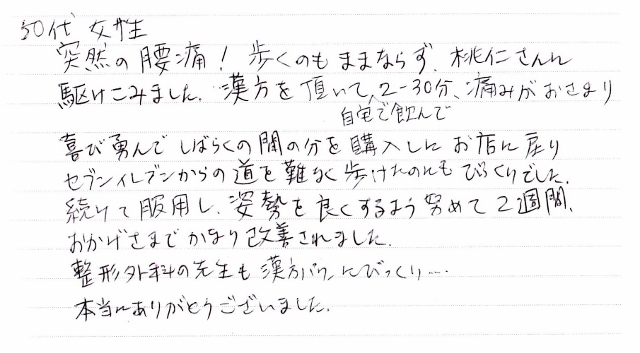 50代 女性
突然の腰痛！歩くのもままならず、桃仁さんに
駆けこみました。漢方を頂いて、2-30分、痛みがおさまり
自宅で飲んで
喜び勇んでしばらくの間の分を購入しにお店に戻り
セブンイレブンからの道を難なく歩けたのにもびっくりでした。
続けて服用し、姿勢を良くするよう努めて2週間、
おかげさまでかなり改善されました。
整形外科の先生も漢方パワーにびっくり…
本当にありがとうございました。